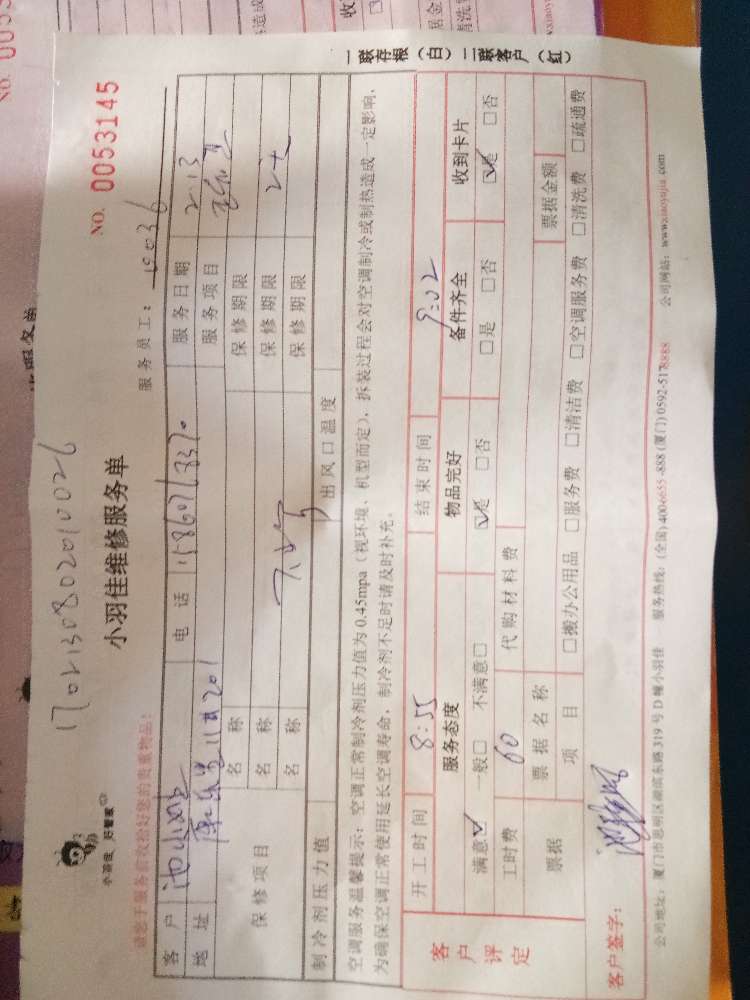 1702130802010026
NO. 0053145
小羽佳 好管家
小羽佳维修服务单
请您于服务前收拾好您的贵重物品:
服务员工: 19036
客户 电话 15860768370 服务日期 2.13
地址 11#201 服务项目
保修项目 名称 保修期限
名称 保修期限
名称 保修期限
制冷剂压力值 出风口温度
空调服务温馨提示: 空调正常制冷剂压力值为0.45mpa (视环境、机型而定), 拆装过程会对空调制冷或制热造成一定影响,
为确保空调正常使用延长空调寿命, 制冷剂不足时请及时补充。
一联存根 (白) 二联客户 (红)
客户评定
开工时间 8:55 结束时间 9:02
服务态度 物品完好 备件齐全 收到卡片
满意☑ 一般□ 不满意□ ☑是 □否 □是 □否 ☑是 □否
工时费 60 代购材料费
票据 票据名称 票据金额
项目 □搬办公用品 □服务费 □清洁费 □空调服务费 □清洗费 □疏通费
客户签字:
公司地址: 厦门市思明区湖滨东路319号D幢小羽佳 服务热线: (全国) 400-6655-888 (厦门) 0592-5178888 公司网站: www.xiaoyujia.com